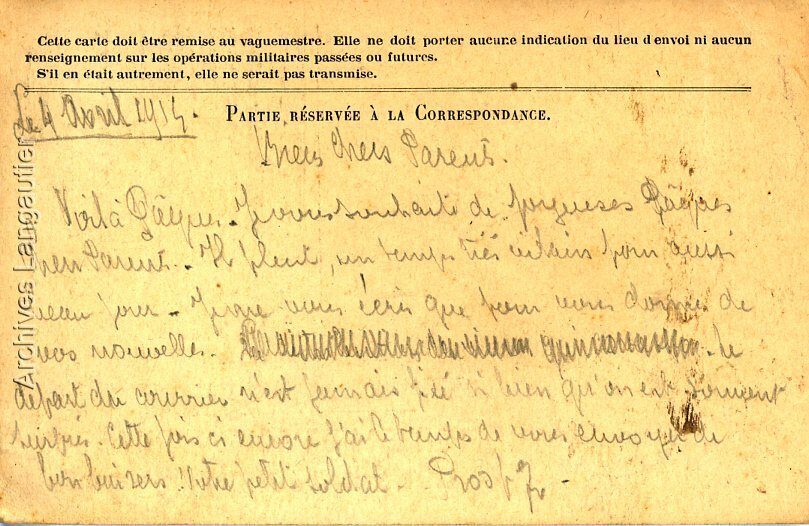 Cette carte doit être remise au vaguemestre. Elle ne doit porter aucune indication du lieu d'envoi ni aucun
renseignement sur les opérations militaires passées ou futures.
S'il en était autrement, elle ne serait pas transmise.
Le 4 Avril 1915.
PARTIE RÉSERVÉE À LA CORRESPONDANCE.
Mes Chers Parents.
Voilà Pâques. Je vous souhaite de joyeuses Pâques
chers Parents. Il pleut, un temps très vilain pour aussi
beau jour. Je ne vous écris que pour vous donner de
nos nouvelles. Le
départ du courrier n'est jamais fixé si bien qu'on est souvent
Cette fois ci encore j'ai le temps de vous envoyer de
bons baisers. Votre petit soldat.
Archives Langautier